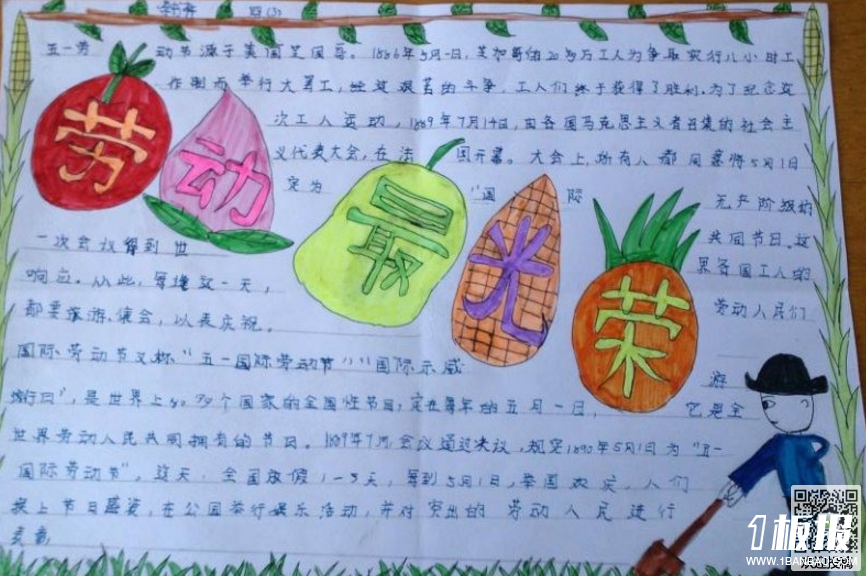 四(3)
五一劳动节源于美国芝加哥。1886年5月1日,芝加哥的20多万工人为争取实行八小时工
作制而举行大罢工,经过艰苦的斗争,工人们终于获得了胜利。为了纪念这
次工人运动,1889年7月14日,由各国马克思主义者召集的社会主
义代表大会,在法国开幕。大会上,所有人都同意将5月1日
定为"国际无产阶级的
共同节日。这
一次会议得到世界各国工人的
响应。从此,每逢这一天,劳动人民们
都要旅游、集会,以表庆祝。
劳动最光荣
国际劳动节又称"五一国际劳动节""国际示威游
行日",是世界上80多个国家的全国性节日,定在每年的五月一日,它是全
世界劳动人民共同拥有的节日。1889年7月会议通过决议,规定1890年5月1日为"五一
国际劳动节"。这天,全国放假1-3天,每到5月1日,举国欢庆,人们
换上节日盛装,在公园举行娱乐活动,并对突出的劳动人民进行
1板报
WWW.1BANBAO.COM